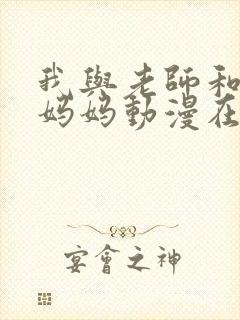 我與老師和
妈妈動漫在
宴會之神